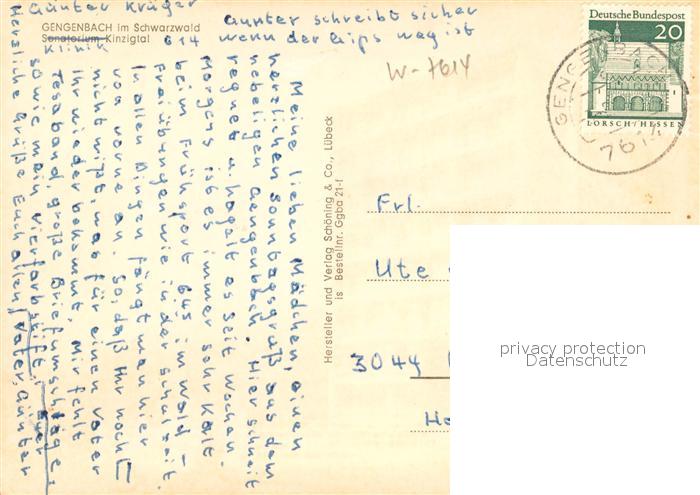 Günter Krüger
GENGENBACH im Schwarzwald
Sanatorium Kinzigtal
Klinik
614
Günter schreibt sicher
wenn der Gips weg ist
W-7614
Meine lieben Mädchen, einen
herzlichen Sonntagsgruß aus dem
nebeligen Gengenbach. Hier schneit
regnet u. hagelt es seit Wochen.
Morgens ist es immer sehr kalt
beim Frühsport 6:45 im Wald –
Freiübungen wie in der Schulzeit.
In allen Dingen fängt man hier
von vorne an. So, daß Ihr noch
nicht wißt, was für einen Vater
Ihr wieder bekommt. Mir fehlt
Tesaband, große Briefumschläge,
sowie mein Vierfarbstift,
Herzliche Grüße Euch allen, Vater, Günter
Hersteller und Verlag Schöning & Co., Lübeck
is Bestellnr. Ggba 21-f
Deutsche Bundespost
20
LORSCH/HESSEN
GENGENBACH
761
Frl.
Ute
3044
He
privacy protection
Datenschutz